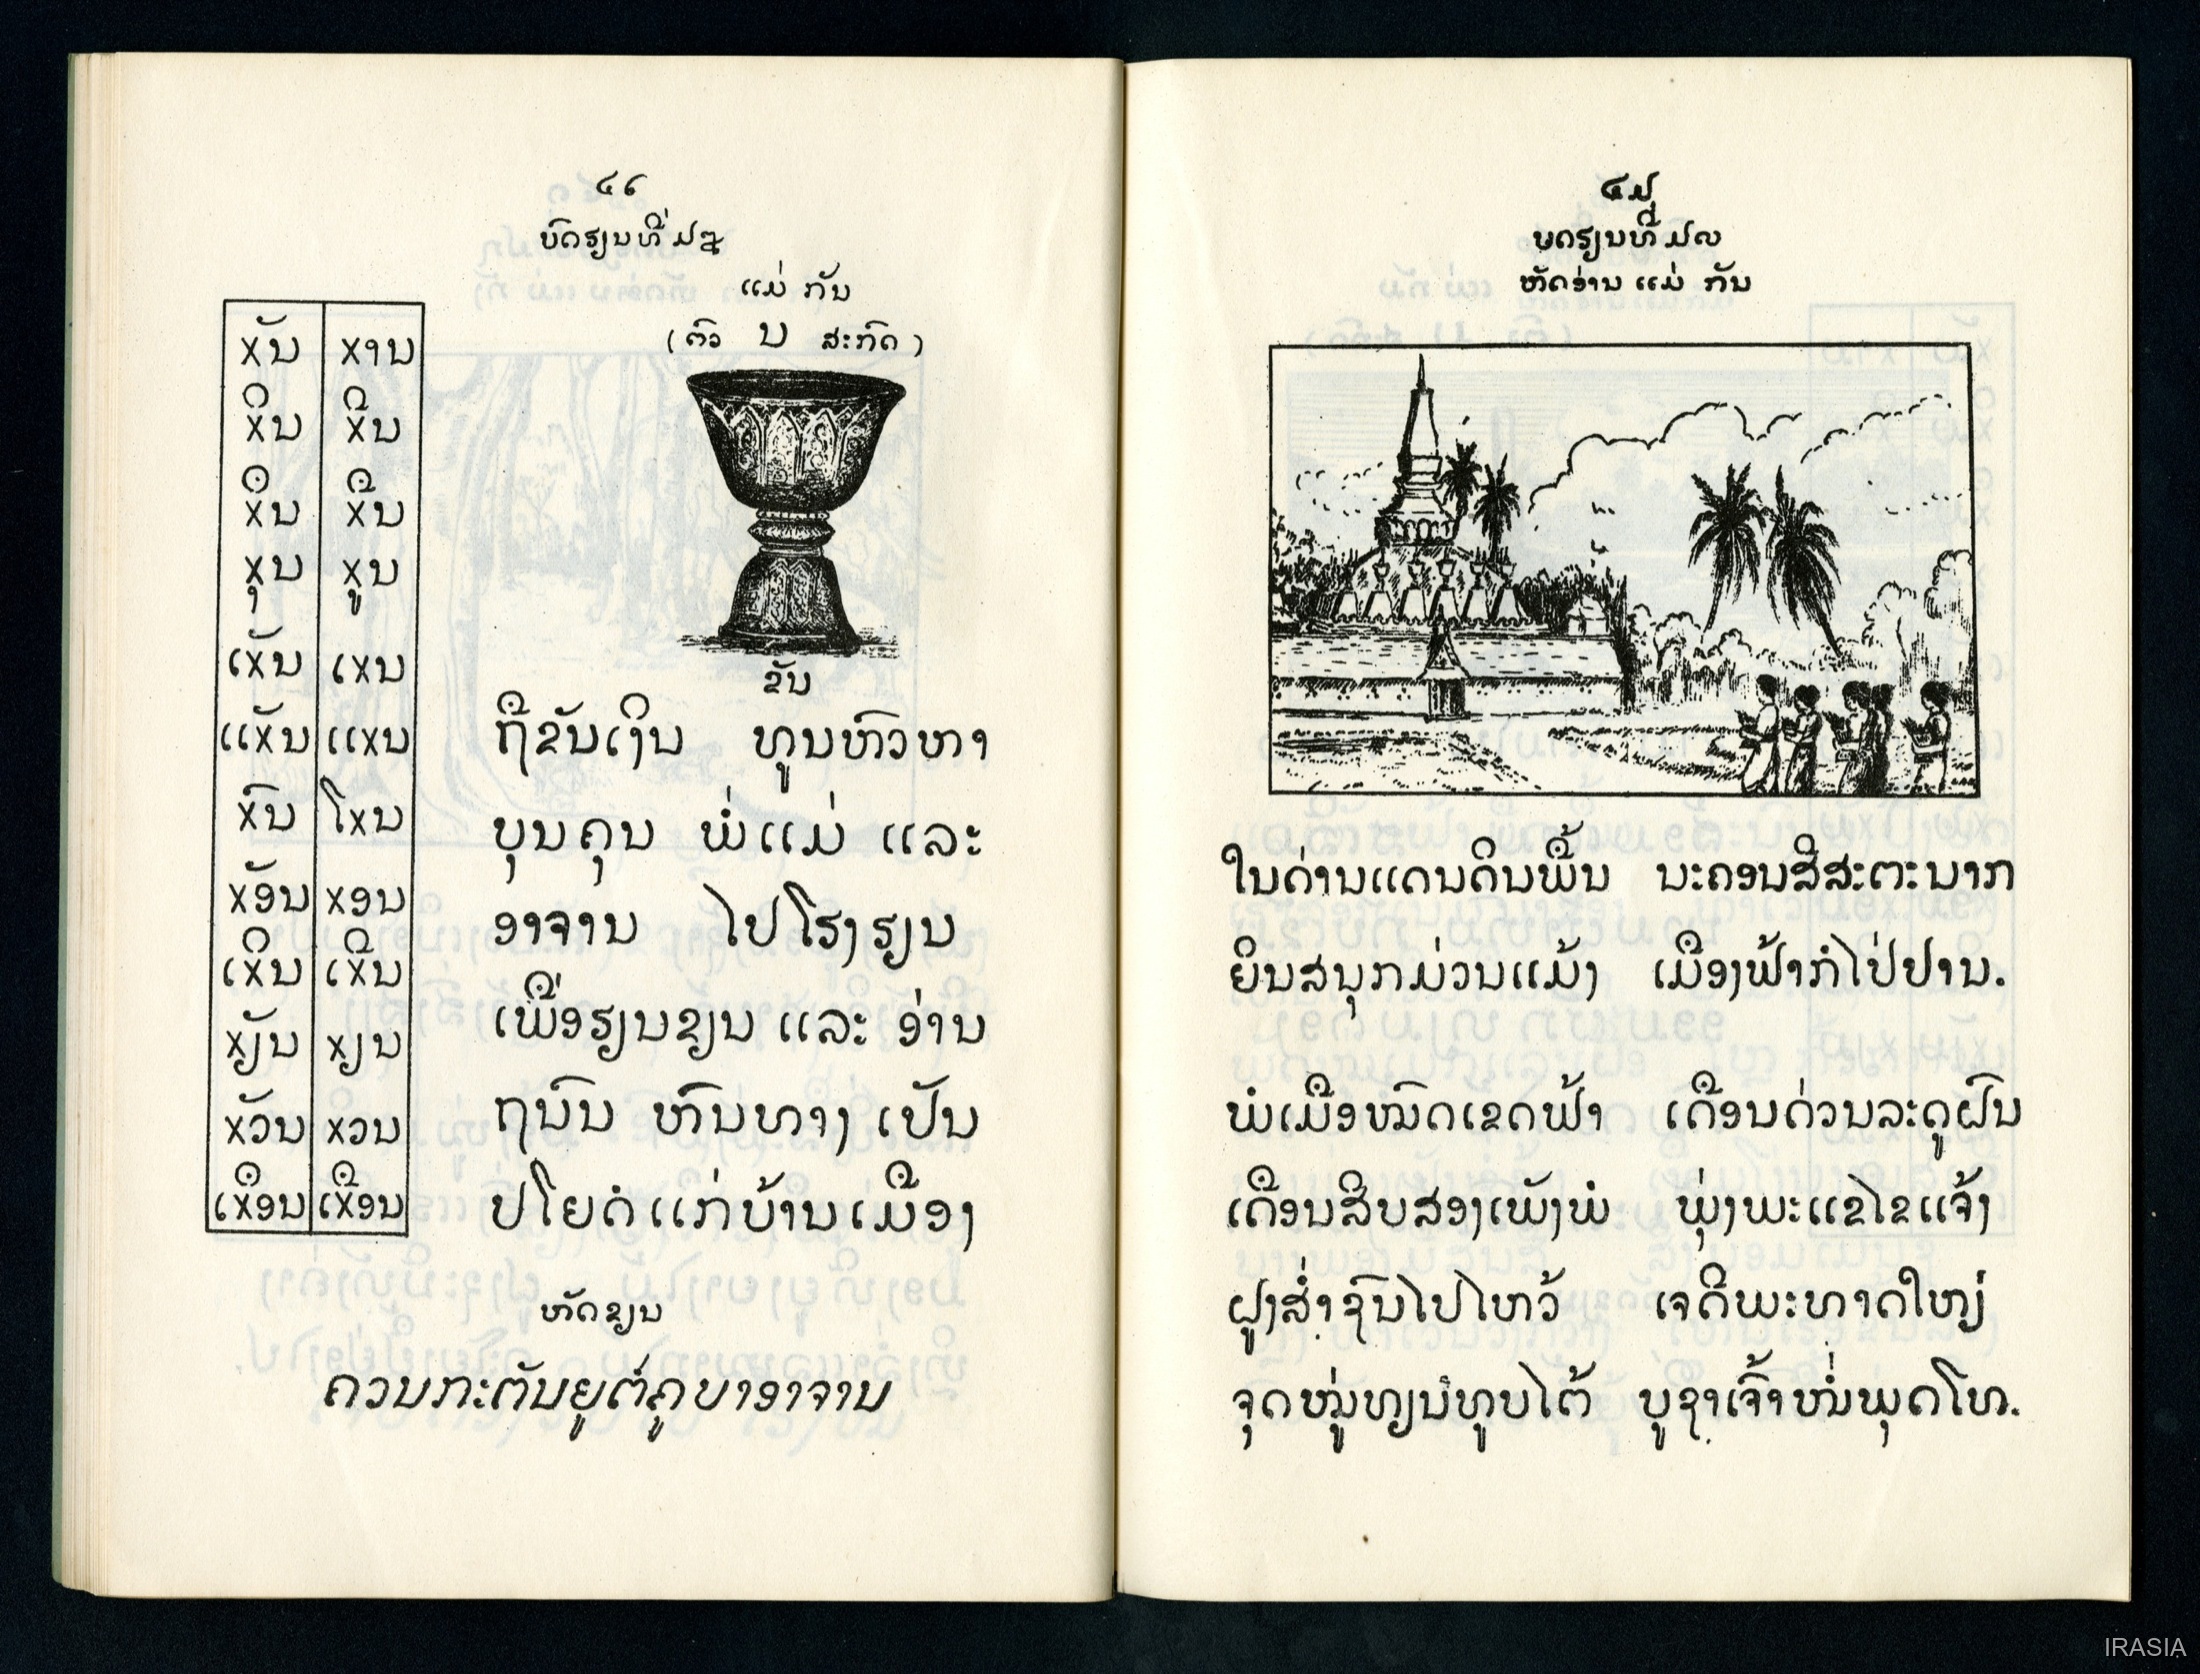 ໔໖
ບົດຮຽນທີ່ ໗໘
ແມ່ ກັນ
(ຕົວ ນ ສະກົດ)
xັນ xານ
xິນ xີນ
xຶນ xືນ
xຸນ xູນ
ເxັນ ເxນ
ແxັນ ແxນ
xົນ ໂxນ
xອັນ xອນ
ເxິນ ເxີນ
xຽັນ xຽນ
xວັນ xວນ
ເxຶອນ ເxືອນ
ຂັນ
ຖືຂັນເງິນ ທູນຫົວຫາ
ບຸນຄຸນ ພໍ່ແມ່ ແລະ
ອາຈານ ໄປໂຮງຮຽນ
ເພື່ອຮຽນຂຽນ ແລະ ອ່ານ
ຖນົນ ຫົນທາງ ເປັນ
ປໂຍດ ແກ່ບ້ານເມືອງ
ຫັດຂຽນ
ຄວນກະຕັນຍູຕໍ່ຄູບາອາຈານ
໔໗
ບດຮຽນທີ່ ໗໙
ຫັດອ່ານ ແມ່ ກັນ
ໃນດ່ານແດນດິນພື້ນ ນະຄອນສີສະຕະນາກ
ຍິນສນຸກມ່ວນແມ້ງ ເມືອງຟ້າກໍໄປ່ປານ.
ພໍເມືອໝົດເຂດຟ້າ ເດືອນດ່ວນລະດູຝົນ
ເດືອນສິບສອງເພັງພໍ ພຸ່ງພະແຂໄຂແຈ້ງ
ຝູງສ່ຳຊົນໄປໄຫວ້ ເຈດີພະທາດໃຫຽ່
ຈຸດໝູ່ທຽນທູບໄຕ້ ບູຊາເຈົ້າໜໍ່ພຸດໂທ.
IRASIA